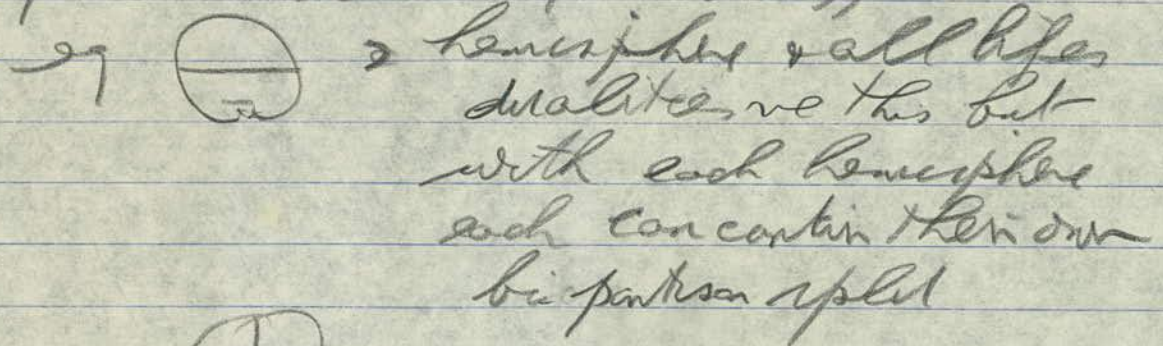 eg 2 hemisphere & all lifes
dualities re this but
with each hemisphere
each can contain their own
bi partisan split